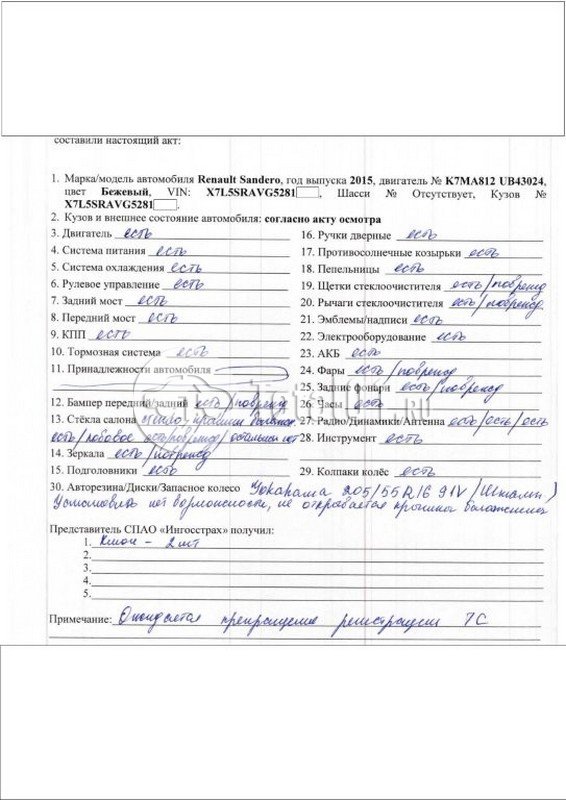 составили настоящий акт:
1. Марка/модель автомобиля Renault Sandero, год выпуска 2015, двигатель № K7MA812 UB43024,
цвет Бежевый, VIN: X7L5SRAVG5281, Шасси № Отсутствует, Кузов №
X7L5SRAVG5281.
2. Кузов и внешнее состояние автомобиля: согласно акту осмотра
3. Двигатель есть
4. Система питания есть
5. Система охлаждения есть
6. Рулевое управление есть
7. Задний мост есть
8. Передний мост есть
9. КПП есть
10. Тормозная система есть
11. Принадлежности автомобиля
12. Бампер передний/задний есть/поврежд
13. Стёкла салона стекло крышки багажн.
есть/лобовое есть/поврежд/остальные
14. Зеркала есть/поврежд
15. Подголовники есть
16. Ручки дверные есть
17. Противосолнечные козырьки есть
18. Пепельницы есть
19. Щетки стеклоочистителя есть/поврежд
20. Рычаги стеклоочистителя есть/поврежд.
21. Эмблемы/надписи есть
22. Электрооборудование есть
23. АКБ есть
24. Фары есть/поврежд
25. Задние фонари есть/поврежд
26. Часы есть
27. Радио/Динамики/Антенна есть/есть/есть
28. Инструмент есть
29. Колпаки колёс есть
30. Авторезина/Диски/Запасное колесо Yokohama 205/55R16 91V/Штамп.)
Установить нет возможности, не открывается крышка багажника
Представитель СПАО «Ингосстрах» получил:
1. Ключ – 2 шт
2.
3.
4.
5.
Примечание: Ожидается прекращение регистрации ТС